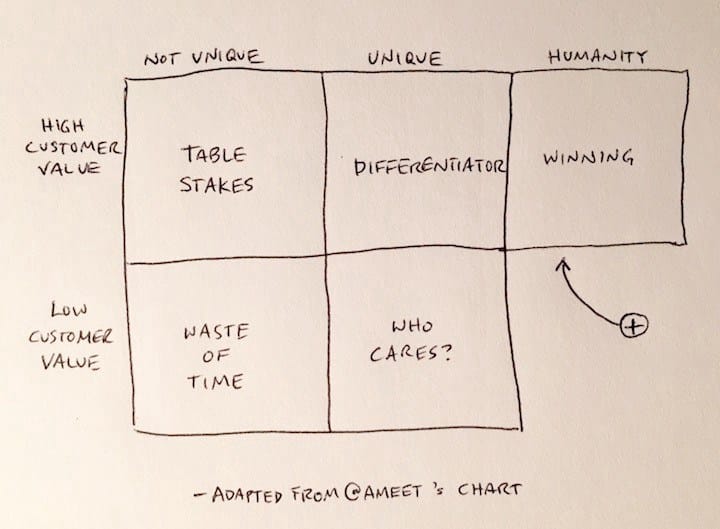 NOT UNIQUE
UNIQUE
HUMANITY
HIGH
CUSTOMER
VALUE
TABLE
STAKES
DIFFERENTIATOR
WINNING
LOW
CUSTOMER
VALUE
WASTE
OF
TIME
WHO
CARES?
- ADAPTED FROM @AMEET 's CHART